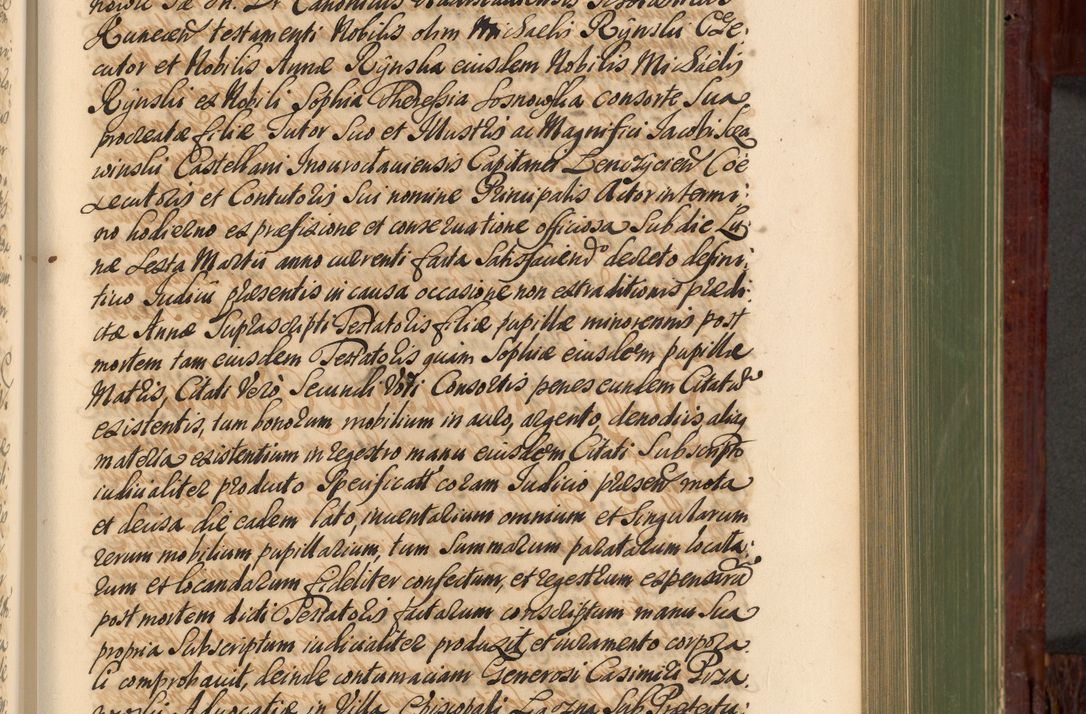 testamenti Nobilis olim Michaelis Rÿnski Exe-
cutor et Nobilis Annæ Rÿnska eiusdem Nobilis Michaelis
Rÿnski ex Nobili Sophia Theressia Sosnowska consorte sua
procreatæ filiæ Tutor suo et Illustris ac Magnifici Jacobi
winski Castellani Inowrocłauiensis Capitanei Co͠e
xecutoris et Contutoris sui nomine Principalis Actor in termi-
no hodierno ex præfixione et conseruatione officiosa sub die Lu-
næ sexta Martii anno currenti facta satisfaciend͠o decreto defini-
tiuo Judicii præsentis in causa occasione non extraditionis prædi-
ctæ Annæ suprascripti Testatoris filiæ pupillæ minorennis post
mortem tam eiusdem Testatoris quam Sophiæ eiusdem pupillæ
Matris, Citati vero secundi voti Consortis penes eundem Citatu͠
existentis, tum bonorum mobilium in auro, argento, clenodiis, aliaq
materia existentium in regestro manu eiusdem Citati subscripto
iudicialiter producto specificatt͠ coram Judicio præsen͠ mota
et decisa die eadem lato, inuentarium omnium et singularum
rerum mobilium pupillarium, tum summarum paratarum locata-
rum et locandarum fideliter confectum, et regestrum expensaru͠
post mortem dicti Testatoris factarum conscriptum manu sua
propria subscriptum iudicialiter produxit, et iuramento corpora
li comprobauit, deinde contumaciam Generosi Casimiri
Aduocatiæ in Villa Episcopali sub